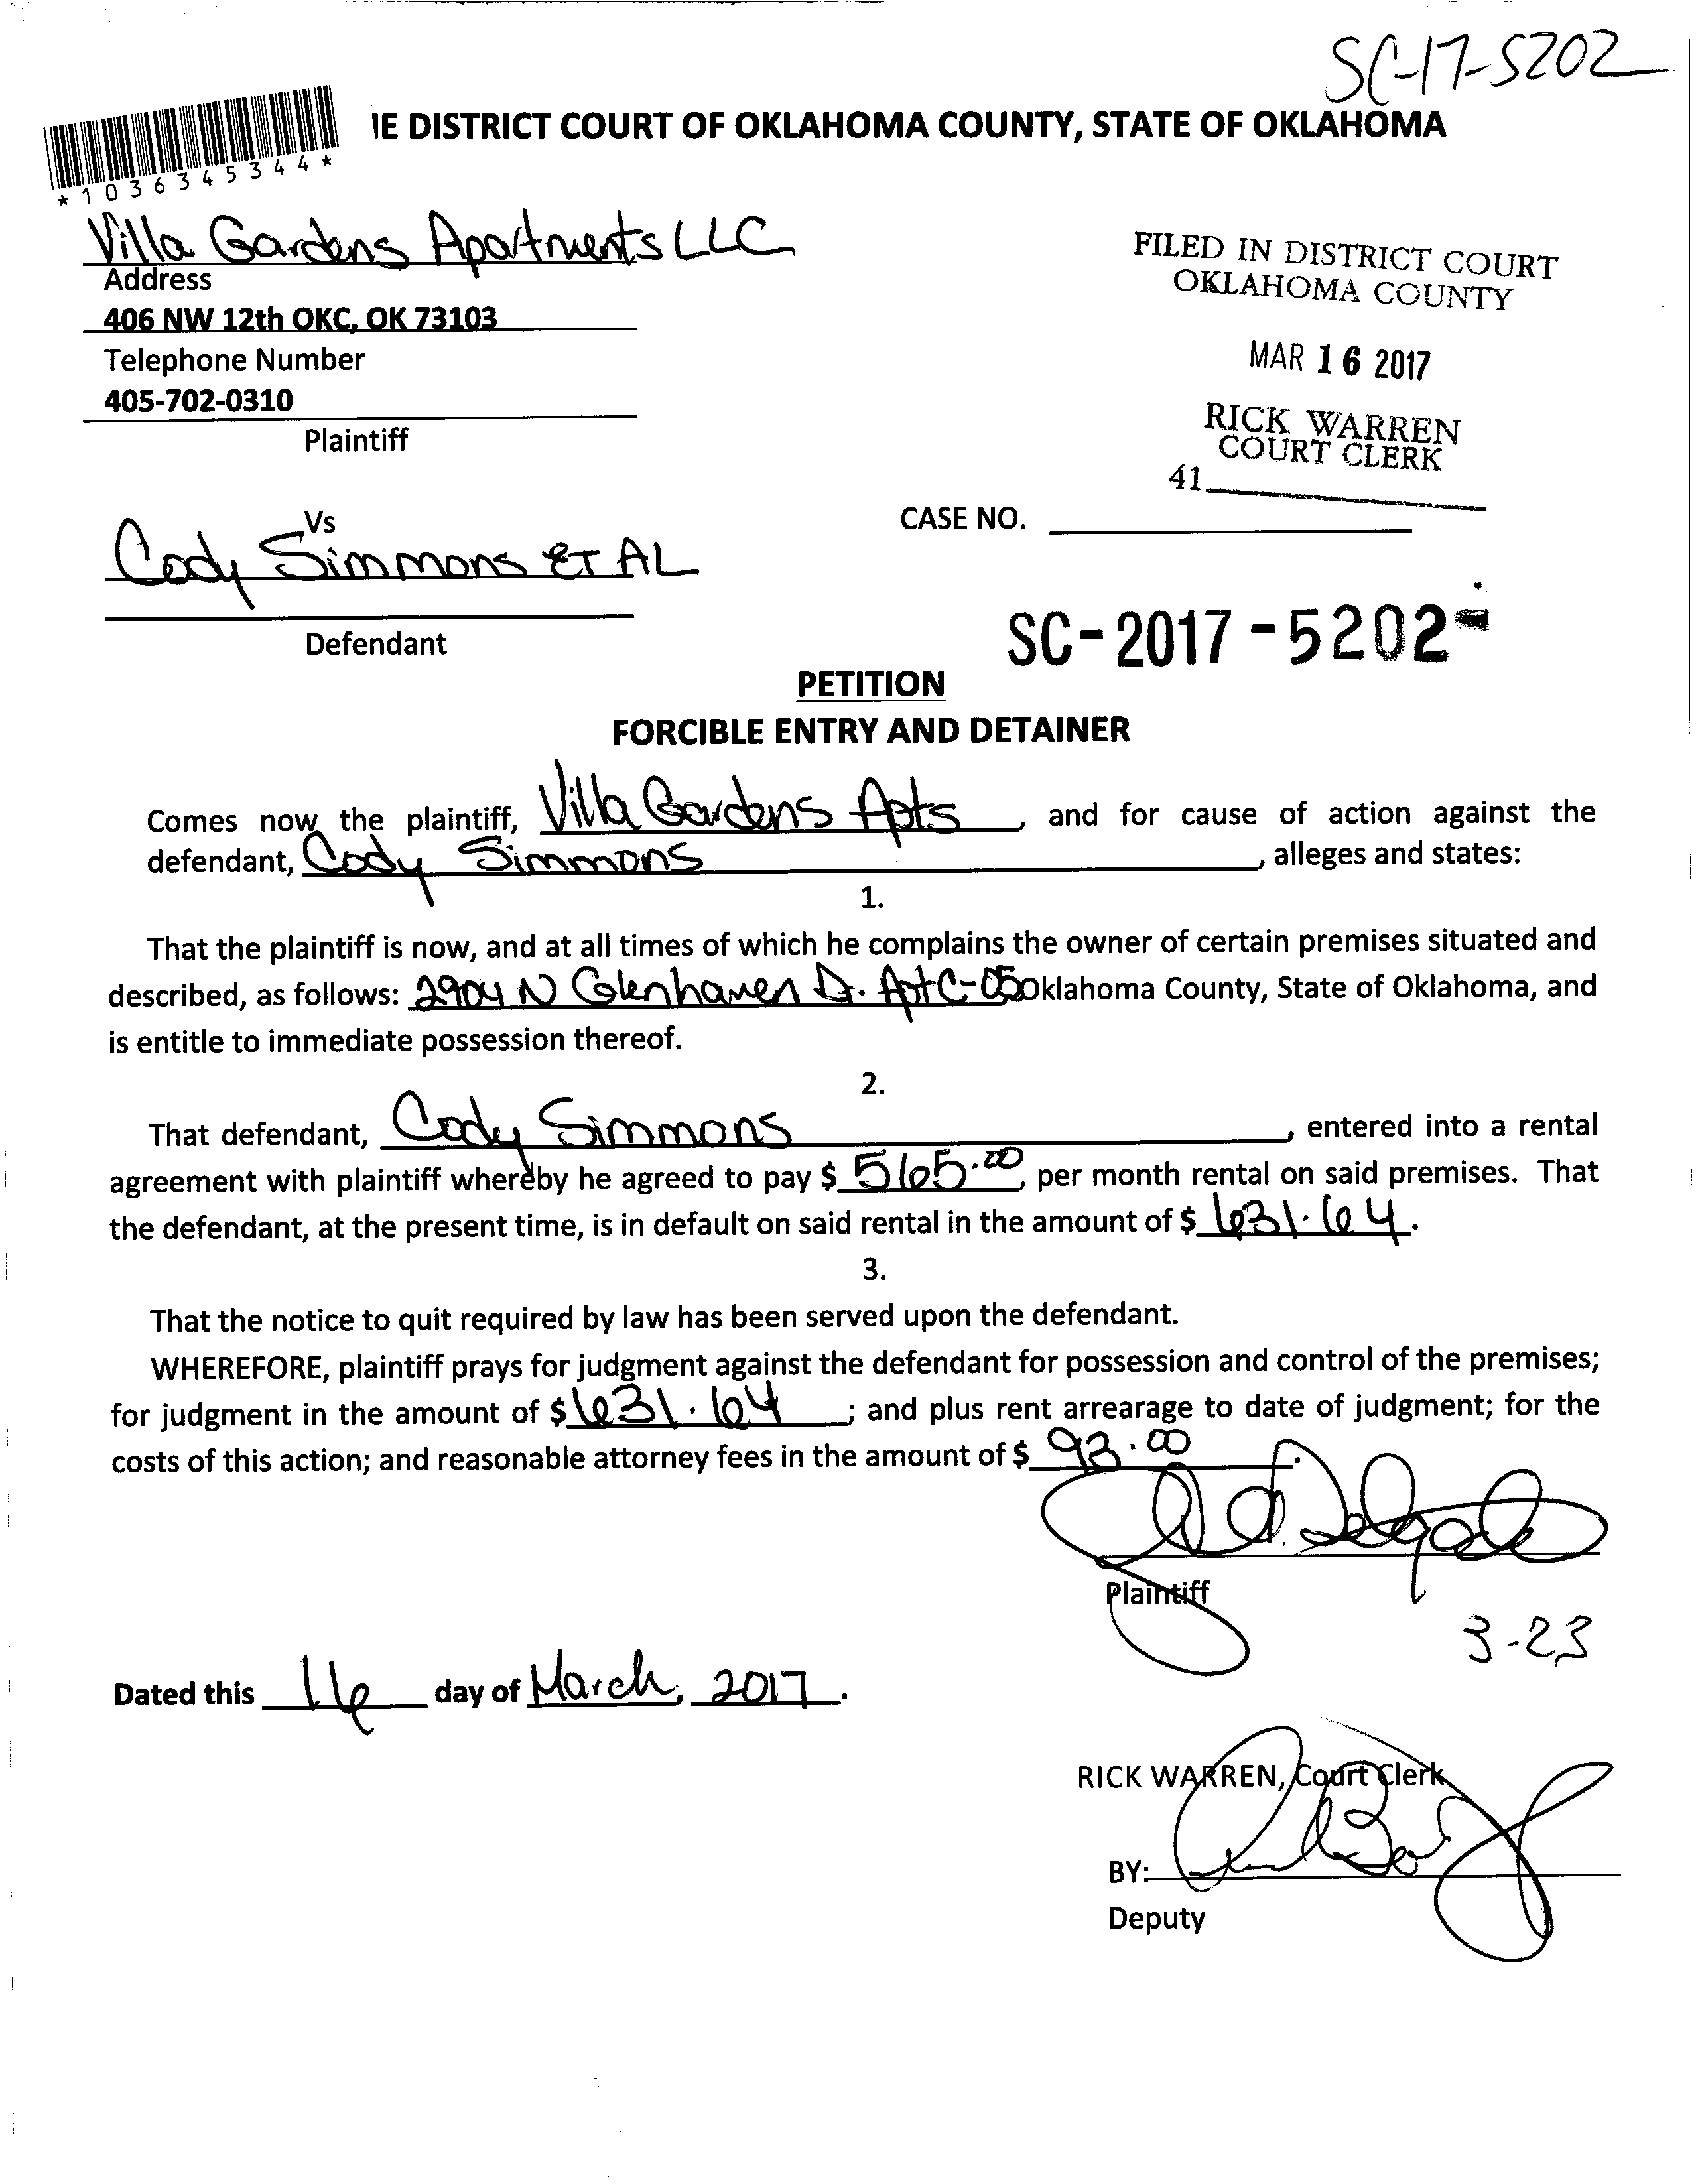 SC-17-5202
IE DISTRICT COURT OF OKLAHOMA COUNTY, STATE OF OKLAHOMA
*1036345344*
Villa Gardens Apartments LLC
Address
406 NW 12th OKC, OK 73103
Telephone Number
405-702-0310
Plaintiff
FILED IN DISTRICT COURT
OKLAHOMA COUNTY
MAR 16 2017
RICK WARREN
COURT CLERK
41
Vs
CASE NO.
Cody Simmons ET AL
Defendant
SC-2017-5202-
PETITION
FORCIBLE ENTRY AND DETAINER
Comes now the plaintiff, Villa Gardens Apts, and for cause of action against the
defendant, Cody Simmons, alleges and states:
1.
That the plaintiff is now, and at all times of which he complains the owner of certain premises situated and
described, as follows: 2904 N Glenhaven Dr. Apt C-05 Oklahoma County, State of Oklahoma, and
is entitle to immediate possession thereof.
2.
That defendant, Cody Simmons, entered into a rental
agreement with plaintiff whereby he agreed to pay $ 565.00, per month rental on said premises. That
the defendant, at the present time, is in default on said rental in the amount of $ 631.64.
3.
That the notice to quit required by law has been served upon the defendant.
WHEREFORE, plaintiff prays for judgment against the defendant for possession and control of the premises;
for judgment in the amount of $ 631.64; and plus rent arrearage to date of judgment; for the
costs of this action; and reasonable attorney fees in the amount of $ 93.00.
Plaintiff
3-23
Dated this 16 day of March, 2017.
RICK WARREN, Court Clerk
BY:
Deputy